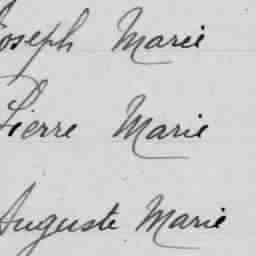 Joseph Marie
Pierre Marie
Auguste Marie